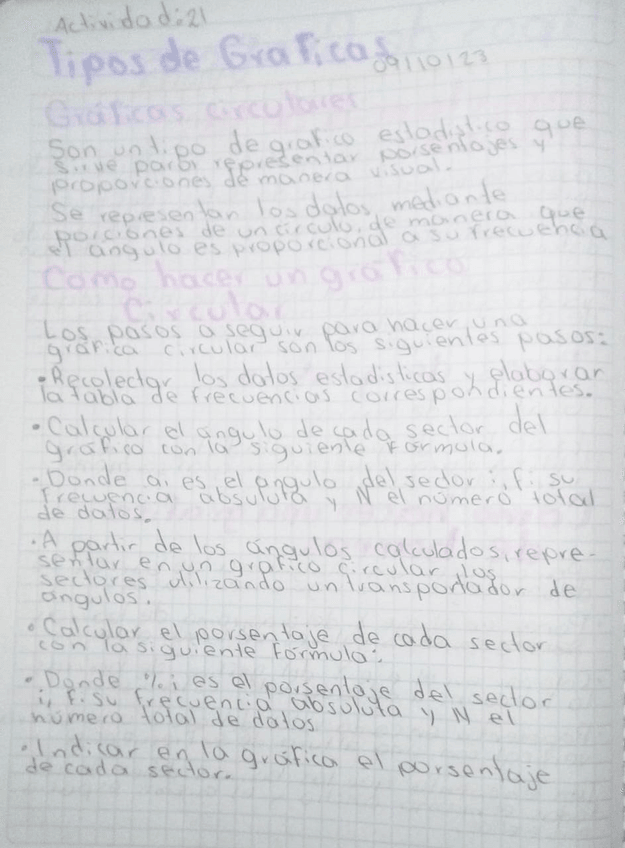 Actividad:21
Tipos de Graficas
09/10/23
Gráficas circulares
Son un tipo de grafico estadistico que
sirve para representar porsentajes y
proporciones de manera visual.
Se representan los datos mediante
porciones de un circulo, de manera que
el angulo es proporcional a su frecuencia
Como hacer un gráfico
Circular
Los pasos a seguir para hacer una
gráfica circular son los siguientes pasos:
•Recolectar los datos estadisticas y elaborar
la tabla de frecuencias correspondientes.
•Calcular el ángulo de cada sector del
gráfico con la siguiente formula.
•Donde ai es el angulo del sector i, fi su
frecuencia absoluta y N el número total
de datos.
•A partir de los ángulos calculados, repre-
sentar en un grafico circular los
sectores utilizando un transportador de
angulos.
•Calcular el porsentaje de cada sector
con la siguiente formula:
•Donde %i es el porsentaje del sector
i, f: su frecuencia absoluta y N el
número total de datos
•Indicar en la gráfica el porsentaje
de cada sector.